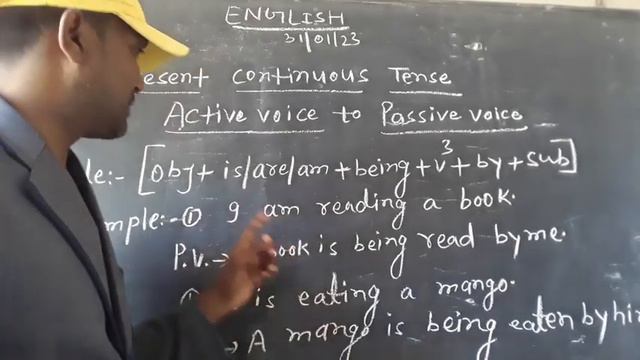 ENGLISH
31/01/23
esent continuous Tense
Active voice to Passive voice
le:- [obj + is/are/am + being + v3 + by + sub]
mple:- ① I am reading a book.
P.V. → book is being read by me.
is eating a mango.
→ A mango is being eaten by him